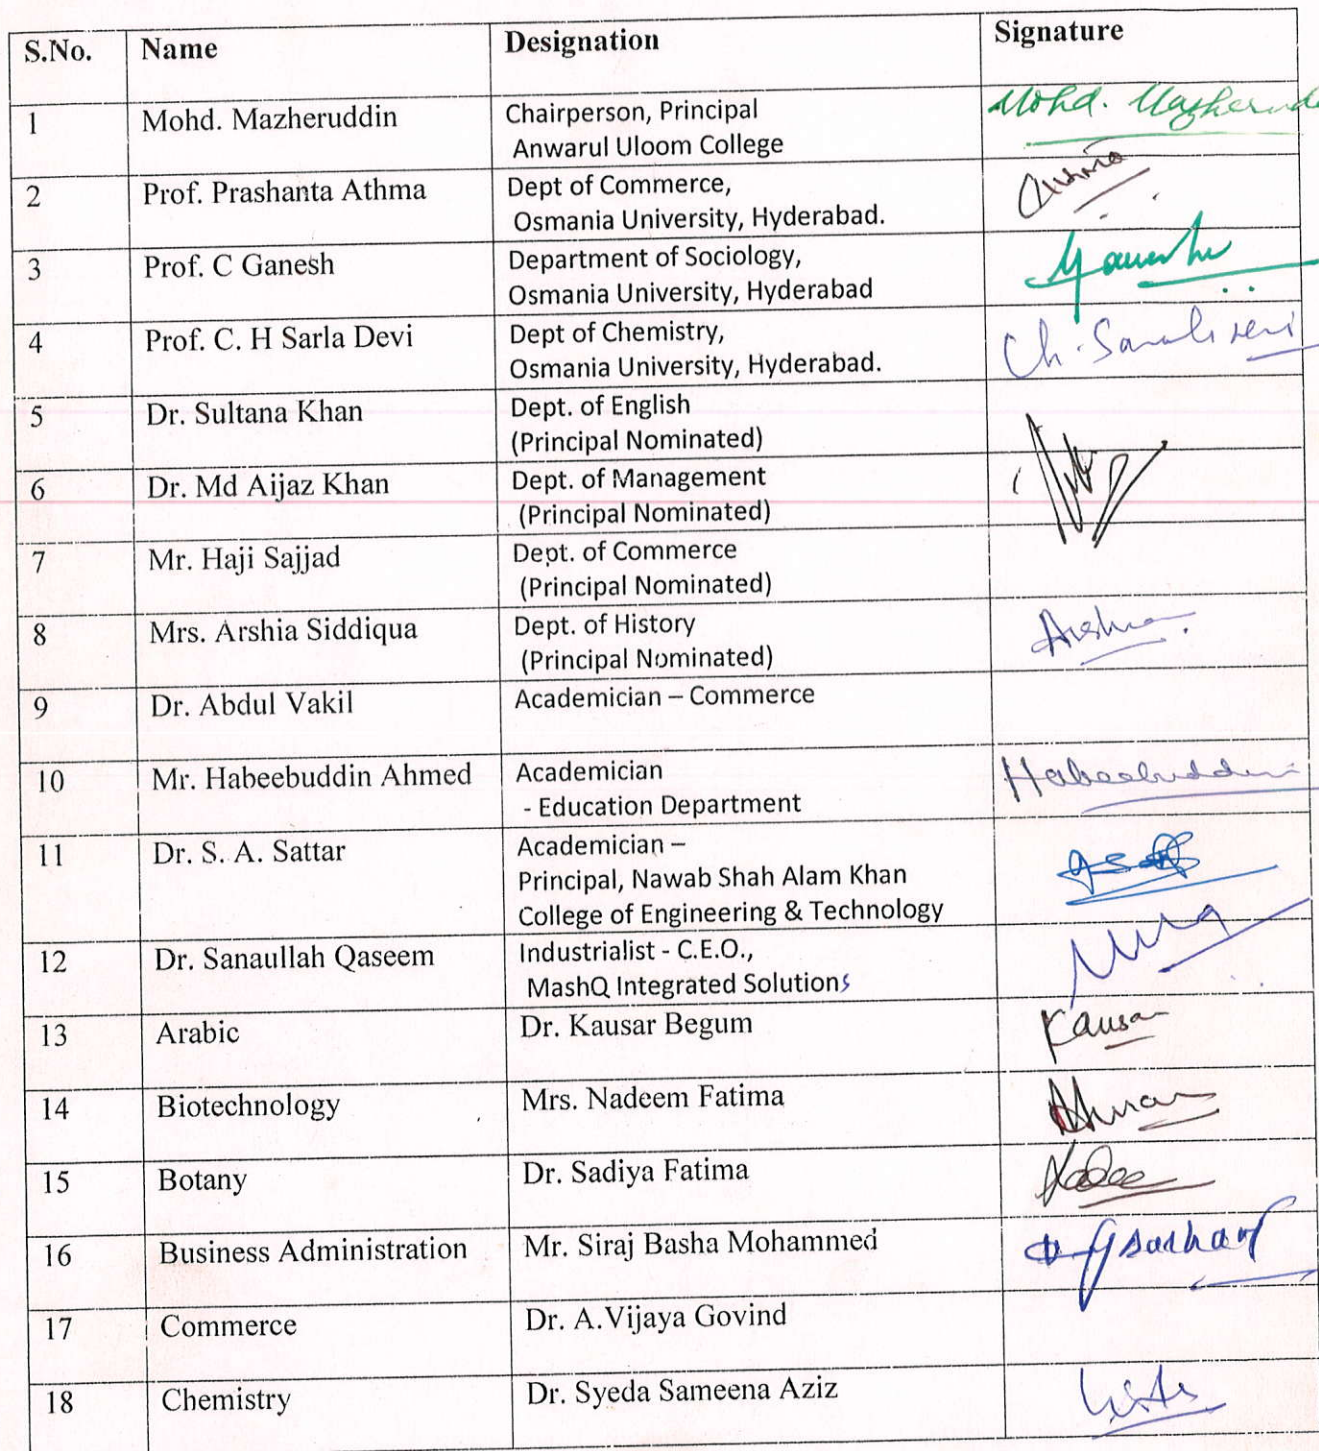 S.No. Name Designation Signature
1 Mohd. Mazheruddin Chairperson, Principal Mohd. Mazherudd
Anwarul Uloom College
2 Prof. Prashanta Athma Dept of Commerce,
Osmania University, Hyderabad.
3 Prof. C Ganesh Department of Sociology,
Osmania University, Hyderabad
4 Prof. C. H Sarla Devi Dept of Chemistry,
Osmania University, Hyderabad.
5 Dr. Sultana Khan Dept. of English
(Principal Nominated)
6 Dr. Md Aijaz Khan Dept. of Management
(Principal Nominated)
7 Mr. Haji Sajjad Dept. of Commerce
(Principal Nominated)
8 Mrs. Arshia Siddiqua Dept. of History
(Principal Nominated)
9 Dr. Abdul Vakil Academician – Commerce
10 Mr. Habeebuddin Ahmed Academician Habeebuddin
- Education Department
11 Dr. S. A. Sattar Academician –
Principal, Nawab Shah Alam Khan
College of Engineering & Technology
12 Dr. Sanaullah Qaseem Industrialist - C.E.O.,
MashQ Integrated Solutions
13 Arabic Dr. Kausar Begum Kausar
14 Biotechnology Mrs. Nadeem Fatima
15 Botany Dr. Sadiya Fatima
16 Business Administration Mr. Siraj Basha Mohammed
17 Commerce Dr. A.Vijaya Govind
18 Chemistry Dr. Syeda Sameena Aziz